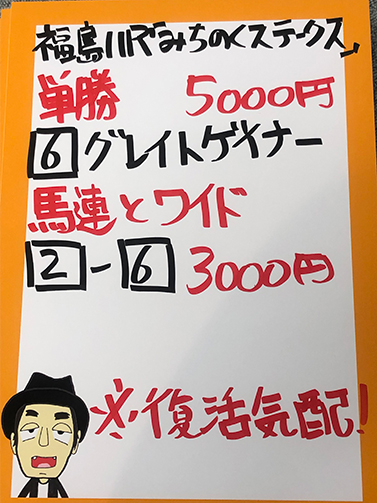 福島11R「みちのくステークス」
単勝 5000円
6 グレイトゲイナー
馬連とワイド
2-6 3000円
※復活気配!